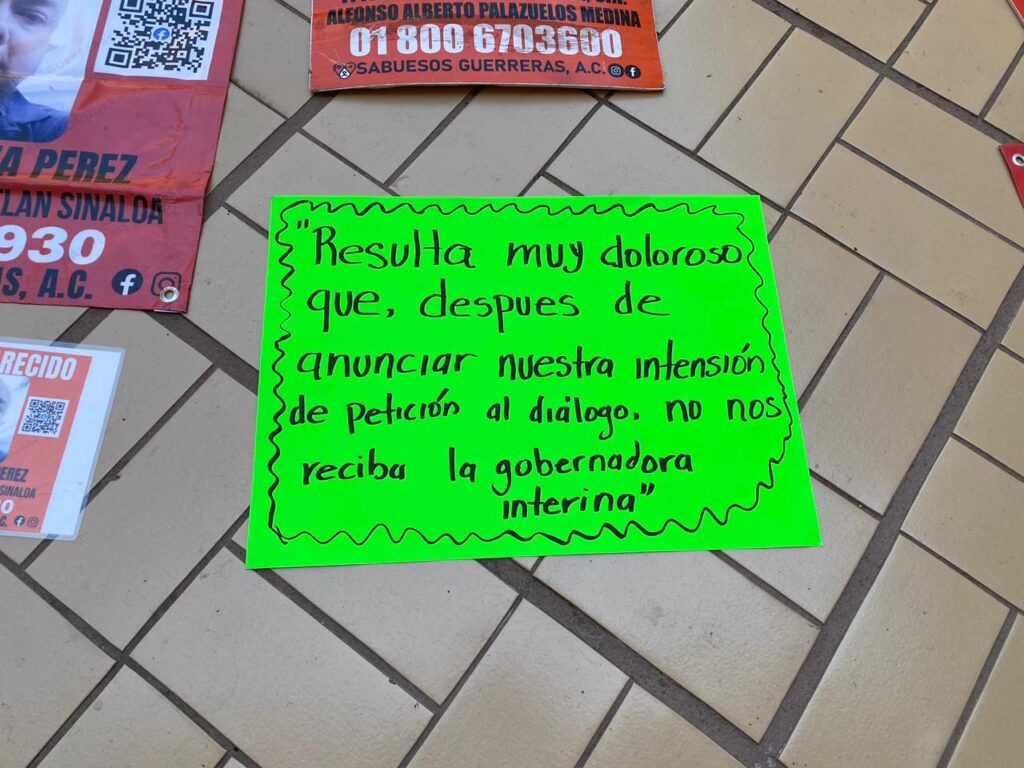 ALFONSO ALBERTO PALAZUELOS MEDINA
01 800 6703600
SABUESOS GUERRERAS, A.C.
PEREZ
SINALOA
930
A.C.
"Resulta muy doloroso
que, despues de
anunciar nuestra intensión
de petición al diálogo, no nos
reciba la gobernadora
interina"
SINALOA
A.C.